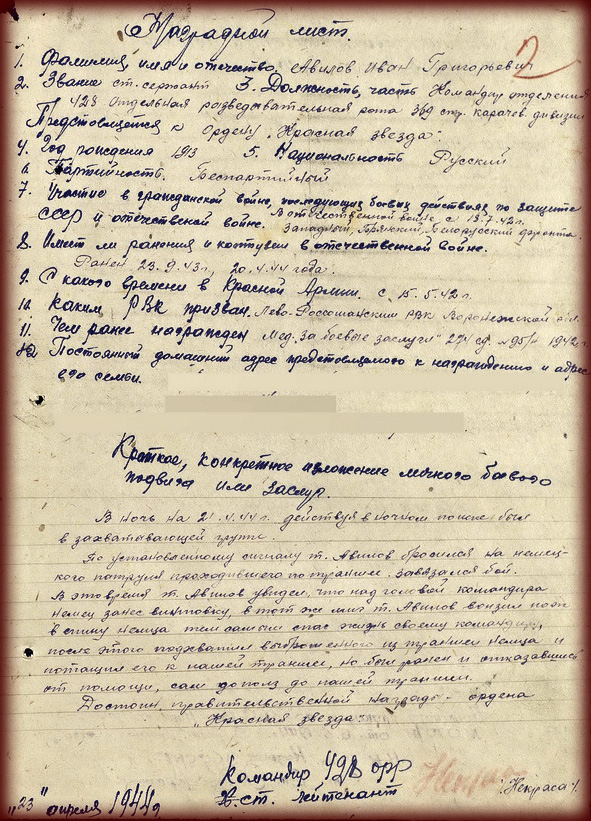 Наградной лист.
2
1. Фамилия, имя и отчество. Авилов Иван Григорьевич
2. Звание ст. сержант 3. Должность, часть Командир отделения
423 Отдельная разведывательная рота 369 стр. карачев. дивизии
Предстовляется к Ордену „Красная звезда".
4. Год рождения 193 5. Национальность Русский
6. Партийность. Беспартийный
7. Участие в гражданской войне, последующих боевых действиях по защите
СССР и отечественой войне. В отечественной войне с 13.7.42г.
Западный, Брянский, Белорусский фронта.
8. Имеет ли ранения и контузии в отечественной войне.
Ранен 23.9.43г, 20.4.44 года.
9. С какого времени в Красной Армии. с 15.5.42г.
10. Каким РВК призван. Лево-Россошанским РВК Воронежской обл.
11. Чем ранее награжден Мед. „За боевые заслуги" 274 сд № 95/н 1942г.
12 Постоянный домашний адрес предстовляемого к награждению и адрес
его семьи.
Краткое, конкретное изложение личного боевого
подвига или заслуг.
В ночь на 21.4.44г. действуя в ночном поиске был
в захватывающей групе.
По установленному сигналу т. Авилов бросился на немец-
кого патруля проходившего по траншеи. Завязался бой.
В это время т. Авилов увидел, что над головой командира
немец занес винтовку, в тот же миг т. Авилов вонзил нож
в спину немца тем самым спас жизнь своему командиру,
после этого подхватили выброженного из траншеи немца и
потащил его к нашей траншее, но был ранен и отказавшись
от помощи, сам дополз до нашей траншеи.
Достоин правительственной награды - ордена
„Красная звезда".
Командир 423 орр
ст. лейтенант
/Некрасов/.
„23" апреля 1944г